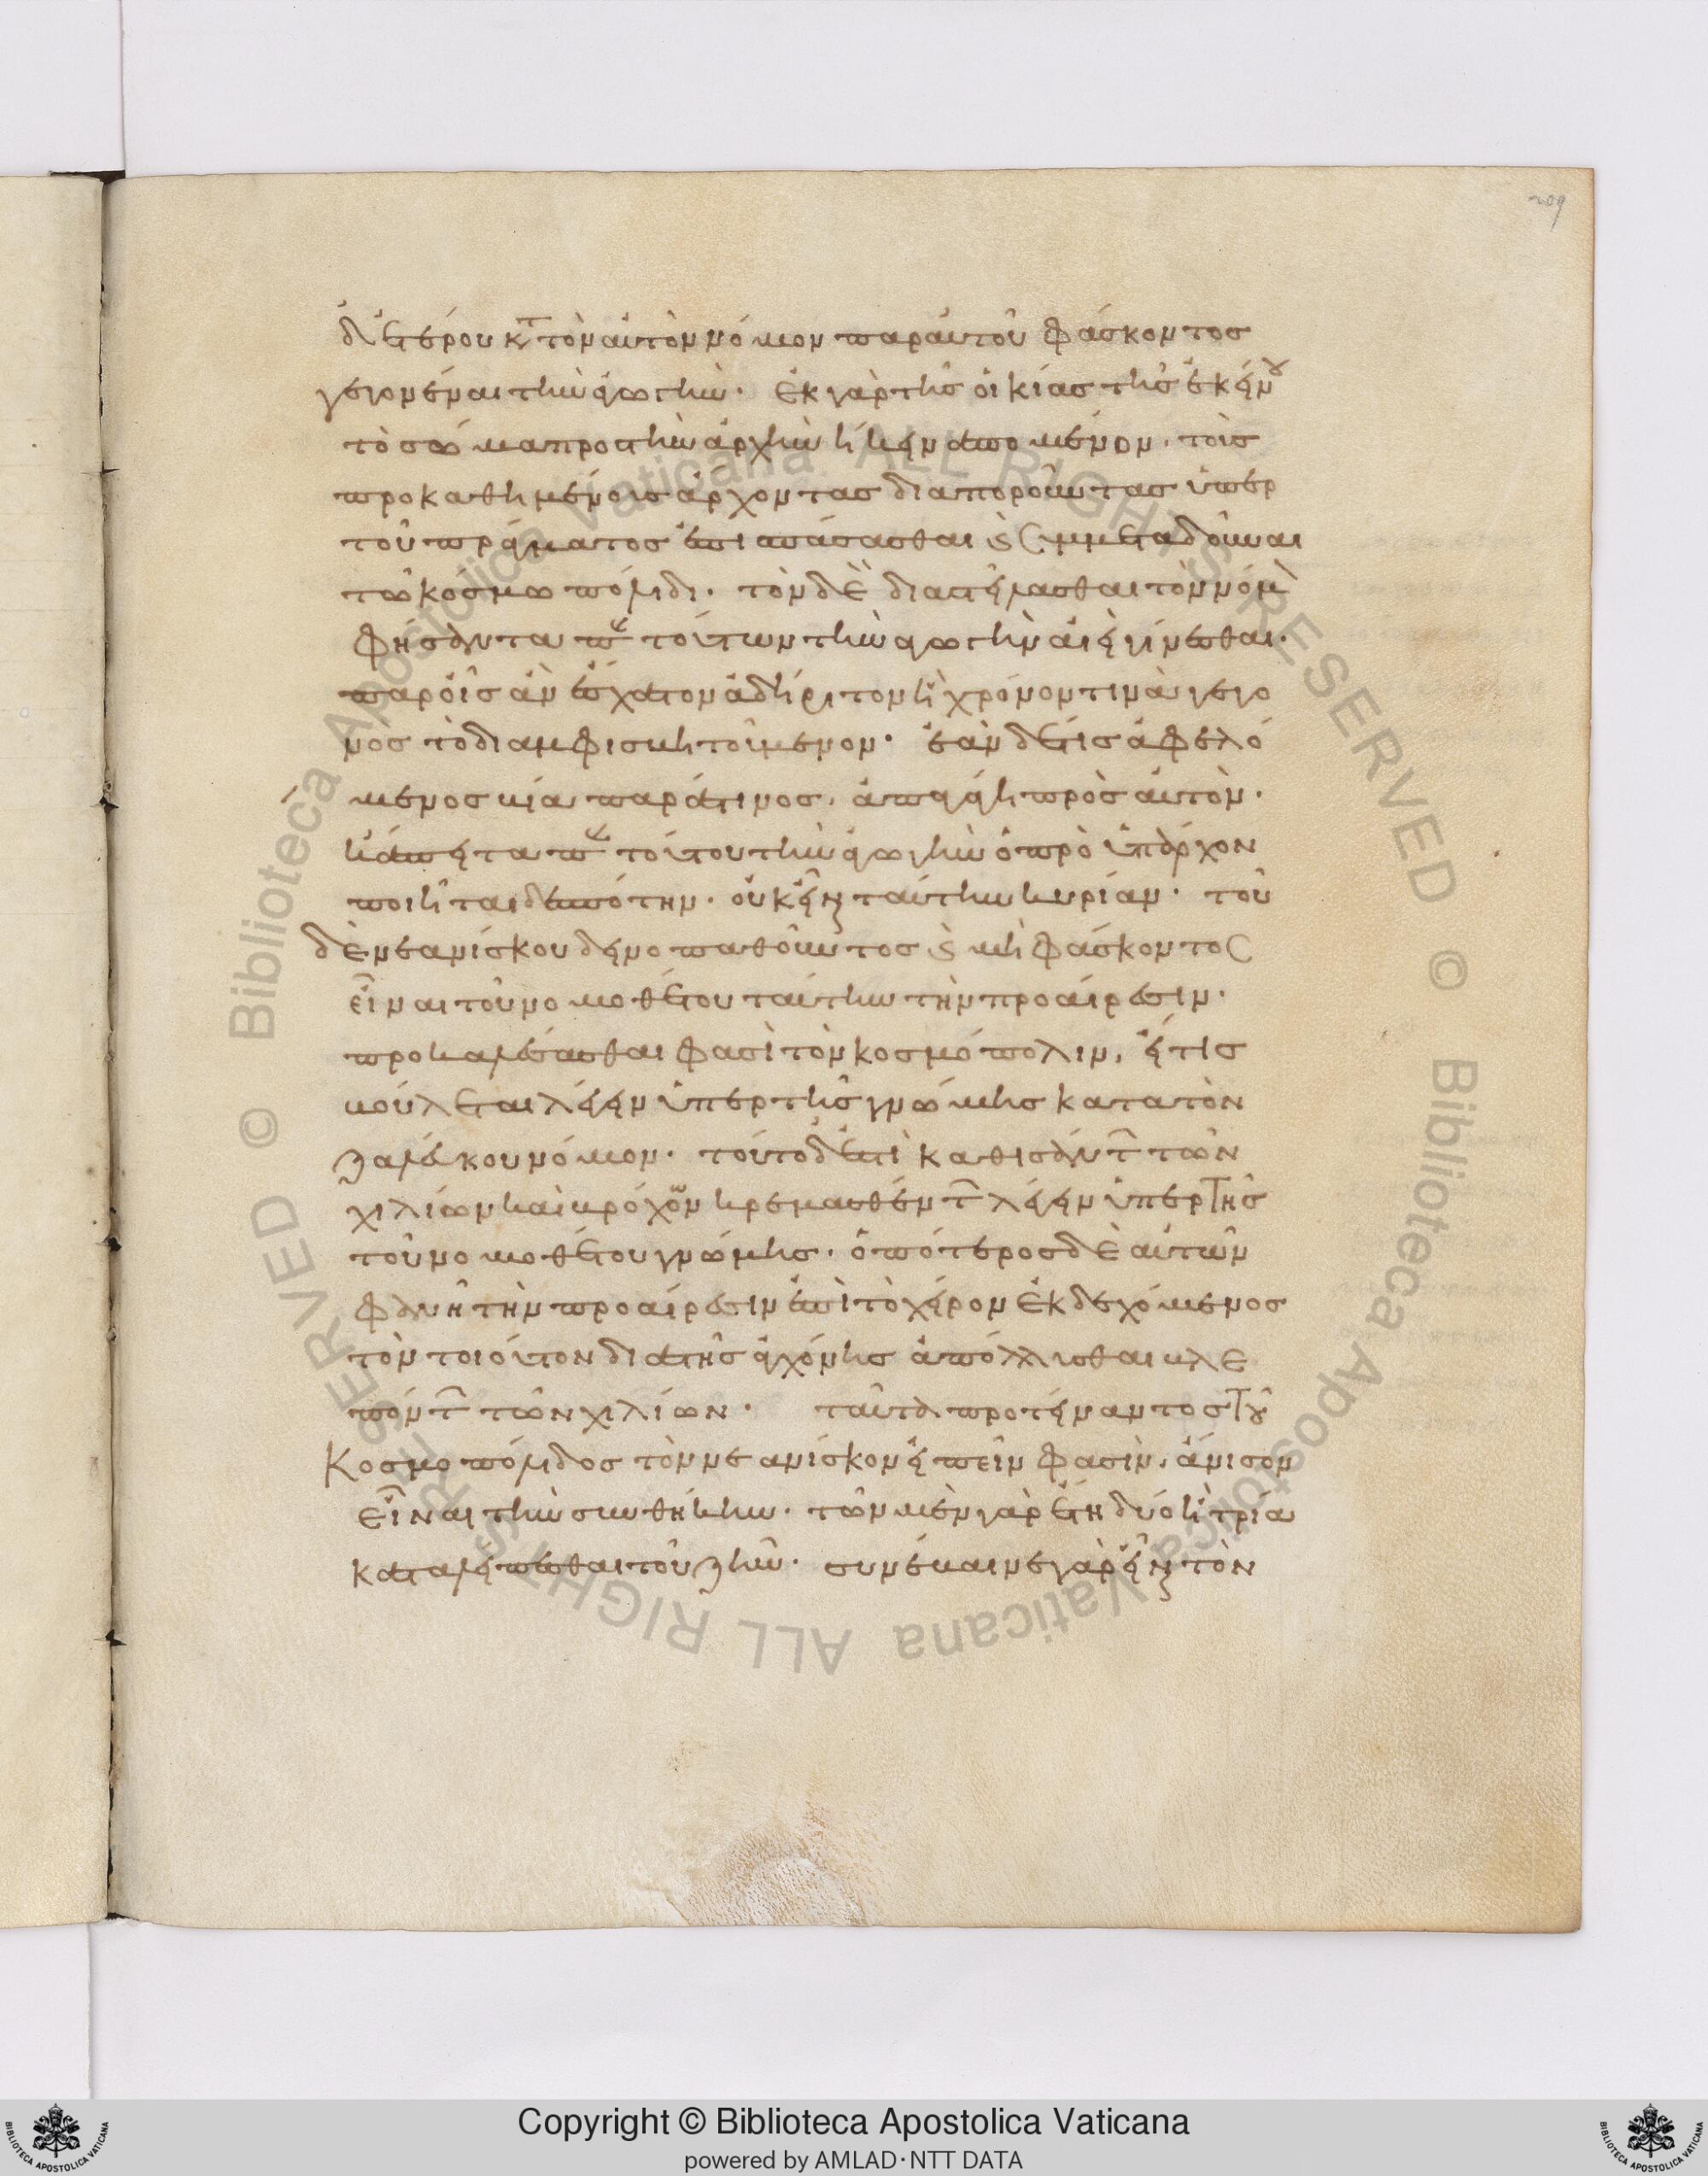 209
δευτέρου κτ τὸν αὐτὸν νόμον παρ αὐτοῦ φάσκοντος
γεγονέναι τὴν ἀγωγὴν· ἐκ γὰρ τῆς οἰκίας τῆς ἐκείνου
τὸ σῶμα πρὸς τὴν ἀρχὴν ἥκειν ἀπομένον· τοὺς
προκαθημένους ἄρχοντας διαποροῦντας ὑπὲρ
τοῦ πράγματος ἐπισπάσασθαι καὶ συμμεταδοῦναι
τῶ κοσμωπόλιδι· τὸν δὲ διαστείλασθαι τὸν νόμὸν
φήσαντα παρὰ τούτων τὴν ἀγωγὴν αἰεὶ γίνεσθαι·
παρ οἷς ἂν ἔσχατον ἀδήριτον ἢ χρόνον τινὰ γεγο
νὸς τὸ διαμφισβητούμενον· ἐὰν δέ τις ἀφελό
μενος βία παρά τινος, ἀπαγάγη πρὸς αὐτὸν·
κἄπειτα παρὰ τούτου τὴν ἀγωγὴν ὁ προϋπάρχων
ποιῆται δεσπότην· οὐκ εἶναι ταύτην κυρίαν· τοῦ
δὲ νεανίσκου δεινοπαθοῦντος καὶ μὴ φάσκοντος
εἶναι τοῦ νομοθέτου ταύτην τὴν προαίρεσιν·
προκαλέσασθαι φασὶ τὸν κοσμόπολιν, εἴ τις
βούλεται λέγειν ὑπὲρ τῆς γνώμης κατα τὸν
ζαλεύκου νόμον· τοῦτο δ ἐστὶ καθισάντ τῶν
χιλίων καὶ βρόχων κρεμασθέντ λέγειν ὑπὲρ τῆς
τοῦ νομοθέτου γνώμης· ὁπότερος δὲ αὐτῶν
φανῆ τὴν προαίρεσιν ἐπὶ τὸ χεῖρον ἐκδεχόμενος
τὸν τοιοῦτον διὰ τῆς ἀγχόνης ἀπόλλυσθαι βλε
πόντ τῶν χιλίων· ταῦτα προτείναντος τοῦ
Κοσμοπόλιδος τὸν νεανίσκον εἰπεῖν φασὶν, ἄνισον
εἶναι τὴν συνθήκην· τῶ μὲν γὰρ ἔτη δύο ἢ τρία
καταλείπεσθαι τοῦ ζῆν· συνέβαινε γὰρ εἶναι τὸν
Copyright © Biblioteca Apostolica Vaticana
powered by AMLAD·NTT DATA